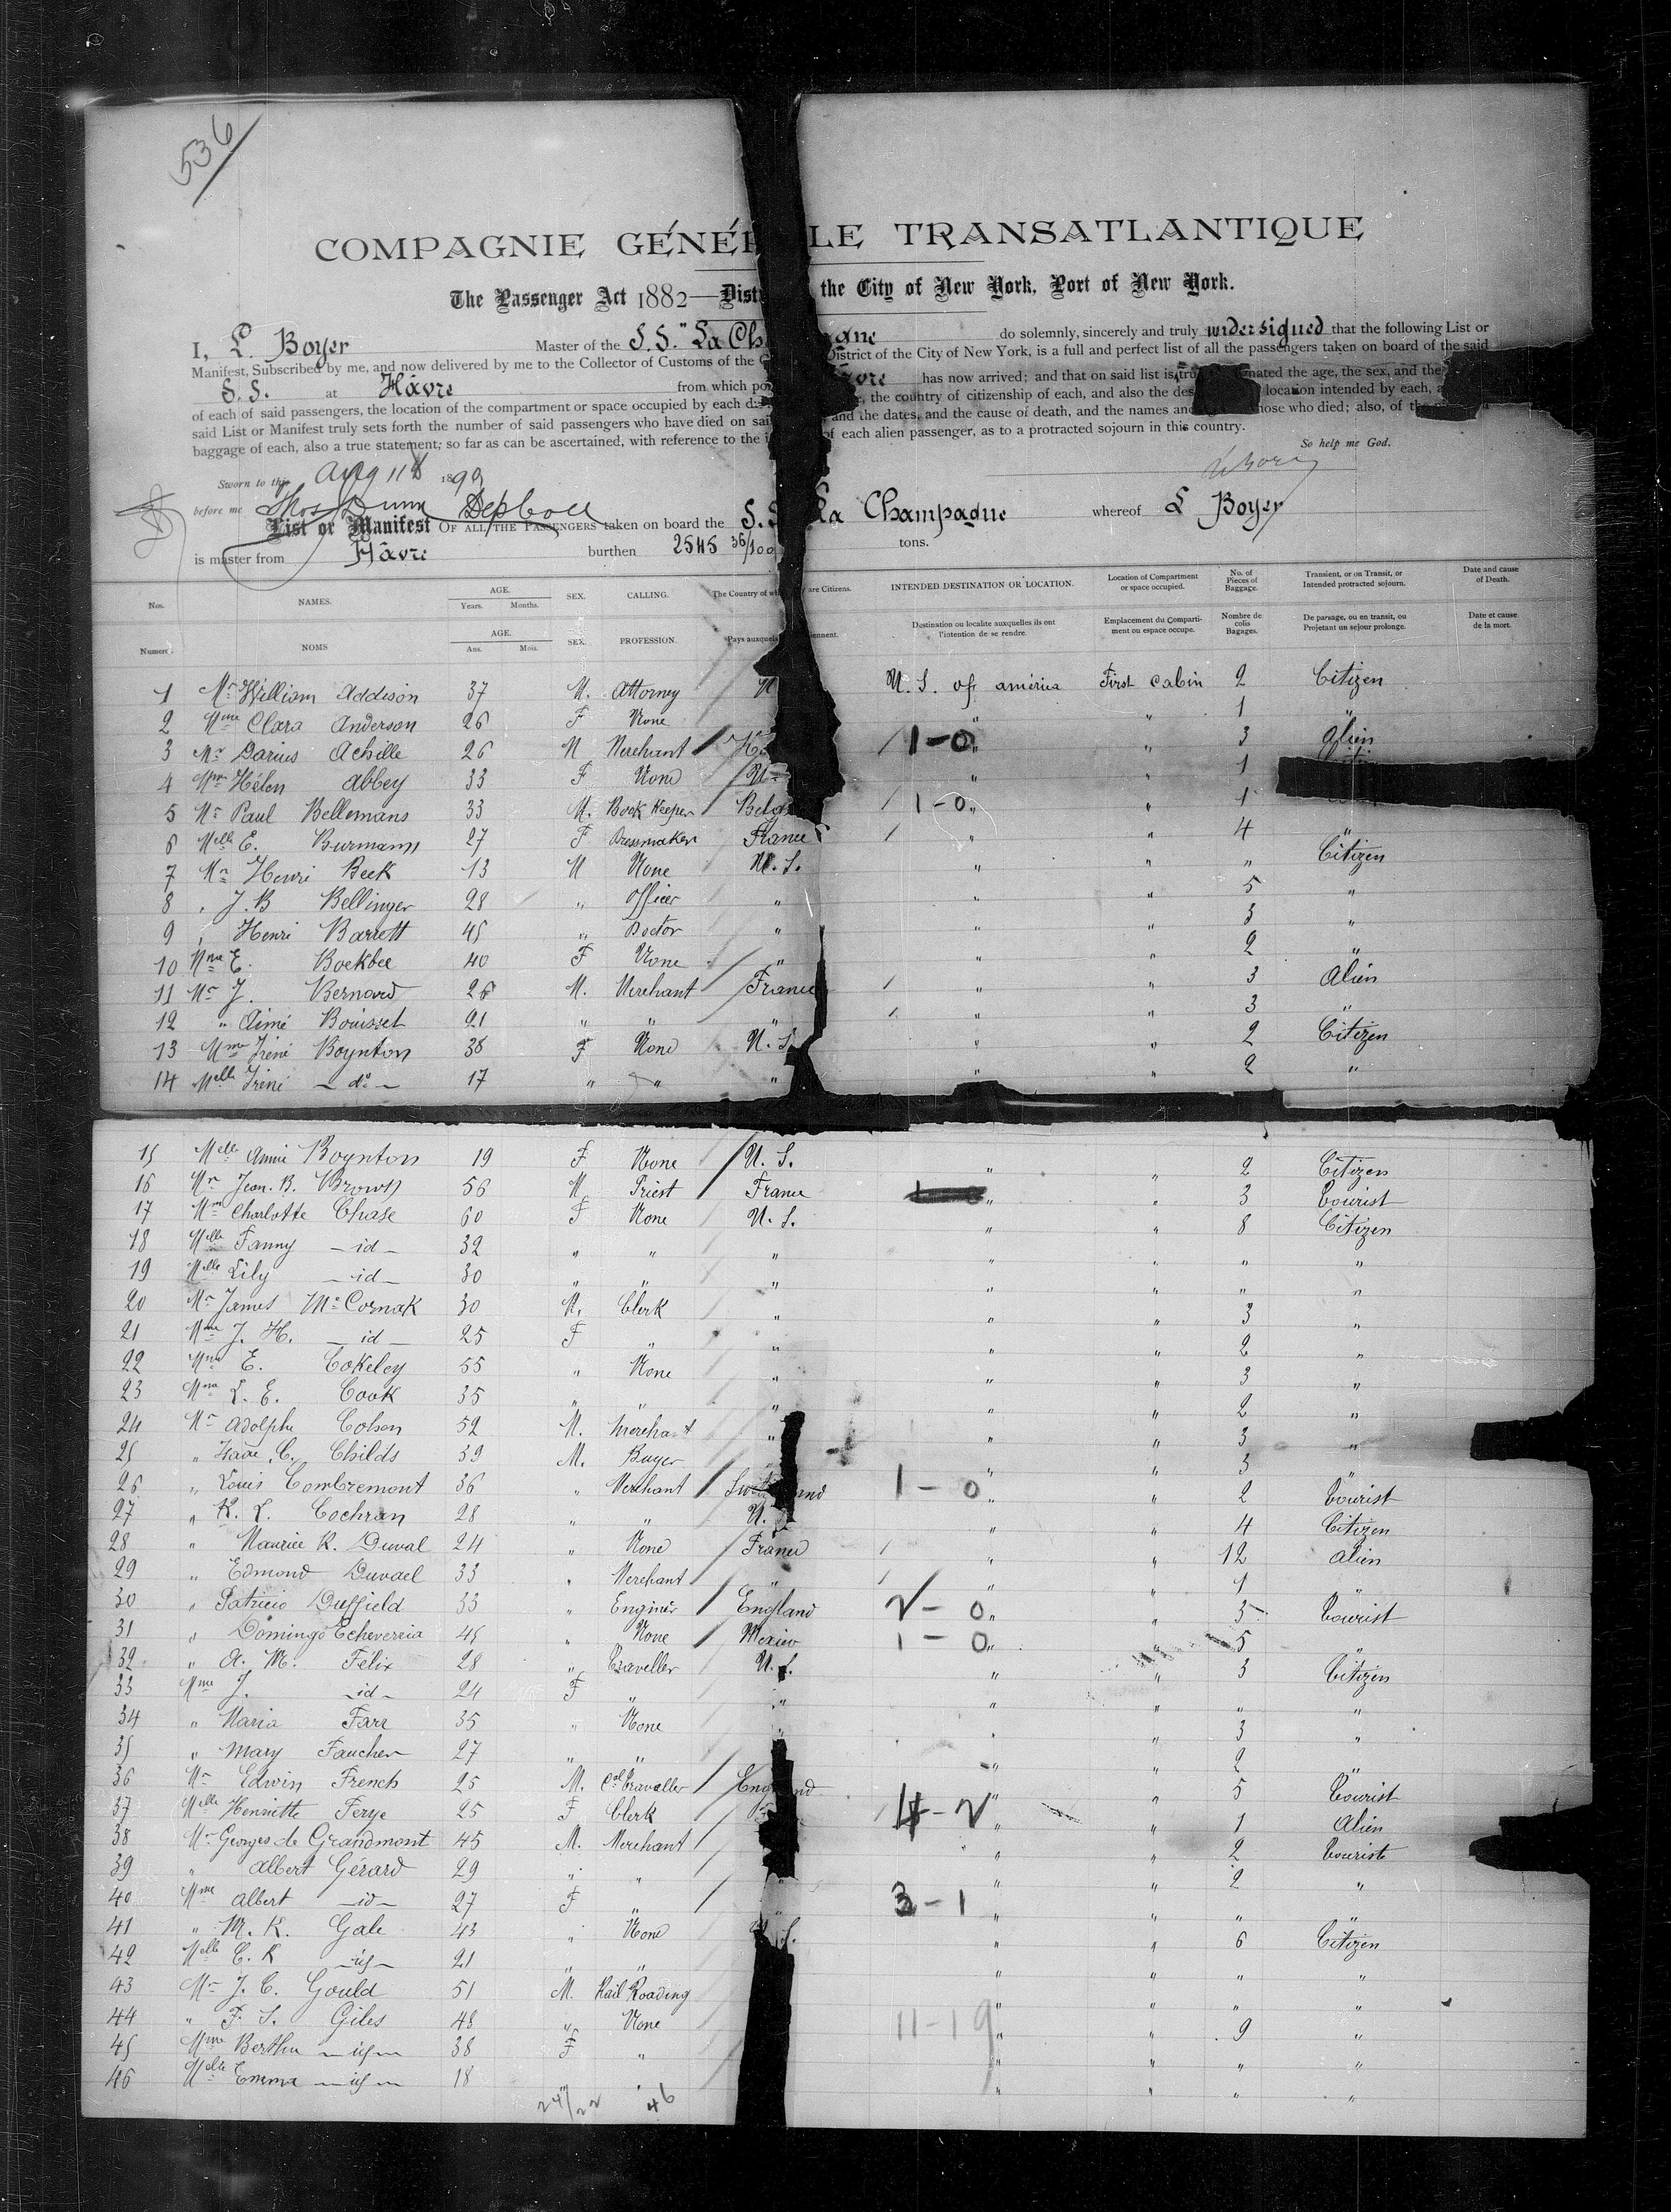 536
COMPAGNIE GÉNÉ LE TRANSATLANTIQUE
The Passenger Act 1882—Dist the City of New York, Port of New York.
I, L. Boyer Master of the S.S. "La Ch gne do solemnly, sincerely and truly undersigned that the following List or
Manifest, Subscribed by me, and now delivered by me to the Collector of Customs of the District of the City of New York, is a full and perfect list of all the passengers taken on board of the said
S.S. at Hâvre from which po âvre has now arrived; and that on said list is tru nated the age, the sex, and the
of each of said passengers, the location of the compartment or space occupied by each the country of citizenship of each, and also the des location intended by each,
said List or Manifest truly sets forth the number of said passengers who have died on sai and the dates, and the cause of death, and the names and those who died; also, of the
baggage of each, also a true statement; so far as can be ascertained, with reference to the of each alien passenger, as to a protracted sojourn in this country.
So help me God.
Sworn to this Aug 11 189
before me Thos Dunn Dep Coll
List or Manifest OF ALL THE PASSENGERS taken on board the S. La Champagne whereof L Boyer
is master from Hâvre burthen 2545 36/100 tons.
Nos. NAMES. AGE. Years. Months. SEX. CALLING. The Country of wh are Citizens. INTENDED DESTINATION OR LOCATION. Location of Compartment or space occupied. No. of Pieces of Baggage. Transient, or on Transit, or Intended protracted sojourn. Date and cause of Death.
Numero. NOMS AGE. Ans. Mois. SEX. PROFESSION. Pays auxquels ennent. Destination ou localite auxquelles ils ont l'intention de se rendre. Emplacement du Comparti- ment ou espace occupe. Nombre de colis Bagages. De parsage, ou en transit, ou Projetant un sejour prolonge. Date et cause de la mort.
1 Mr William Addison 37 M. Attorney U U.S. of america First cabin 2 Citizen
2 Mme Clara Anderson 26 F None " " 1 "
3 Mr Darius Achille 26 M Merchant 1-0 " " 3 Alien
4 Mme Hélen Abbey 33 F None U " " 1
5 Mr Paul Bellemans 33 M. Book Keeper Belg 1-0 " " 1
6 Melle E. Burmann 27 F Dressmaker France " " 4 "
7 Mr Henri Beek 13 M None U.S. " " " Citizen
8 " J.B Bellinger 28 " Officer " " " 5 "
9 " Henri Barrett 45 " Doctor " " " 3 "
10 Mme E. Boekbee 40 F None " " " 2 "
11 Mr J. Bernard 26 M. Merchant France " " 3 Alien
12 " Aimé Bouisset 21 " " " " " 3 "
13 Mme Iréné Boynton 38 F None U.S " " 2 Citizen
14 Melle Iréné — do — 17 " " " " " 2 "
15 Melle Annie Boynton 19 F None U.S. " " 2 Citizen
16 Mr Jean. B. Brown 56 M Priest France " " 3 Tourist
17 Mme Charlotte Chase 60 F None U.S. " " 8 Citizen
18 Melle Fanny — id — 32 " " " " " " "
19 Melle Lily — id — 30 " " " " " " "
20 Mr James Mc Cornak 30 M. Clerk " " " 3 "
21 Mme J. H. — id — 25 F " " " " 2 "
22 Mme E. Cokeley 55 " None " " " 3 "
23 Mme L. E. Cook 35 " " " " " 2 "
24 Mr Adolphe Cohen 52 M. Merchant " " " 3 "
25 " C. Childs 39 M. Buyer " " 3 "
26 " Louis Combremont 36 " Merchant Swit and 1-0 " " 2 Tourist
27 " R. L. Cochran 28 " " U. " " 4 Citizen
28 " Maurice R. Duval 24 " None France " " 12 Alien
29 " Edmond Duvael 33 " Merchant " " " 1 "
30 " Patricio Duffield 33 " Enginér England 2-0 " " 3 Tourist
31 " Domingo Echeverria 45 " None Mexico 1-0 " " 5 "
32 " A. M. Félix 28 " Traveller U.S. " " 3 Citizen
33 Mme J. — id — 24 F " " " " " "
34 " Maria Farr 35 " None " " 3 "
35 " Mary Faucher 27 " " " " " 2 "
36 Mr Edwin French 25 M. Cal Traveller Eng nd " " 5 Tourist
37 Melle Henriette Ferye 25 F Clerk 4-2 " " 1 Alien
38 Mr Georges de Grandmont 45 M. Merchant " " 2 Tourist
39 " Albert Gérard 29 " " " " " 2 "
40 Mme Albert — id — 27 F " " 3-1 " " " "
41 " M. K. Gale 43 " None S. " " 6 Citizen
42 Melle C. K — id — 21 " " " " " "
43 Mr J. C. Gould 51 M. Rail Roading " " " "
44 " F. S. Giles 48 " None 11-19 " " 9 "
45 Mme Bertha — id — 38 F " " " " "
46 Melle Emma — id — 18 " " " " " "
24/22 46